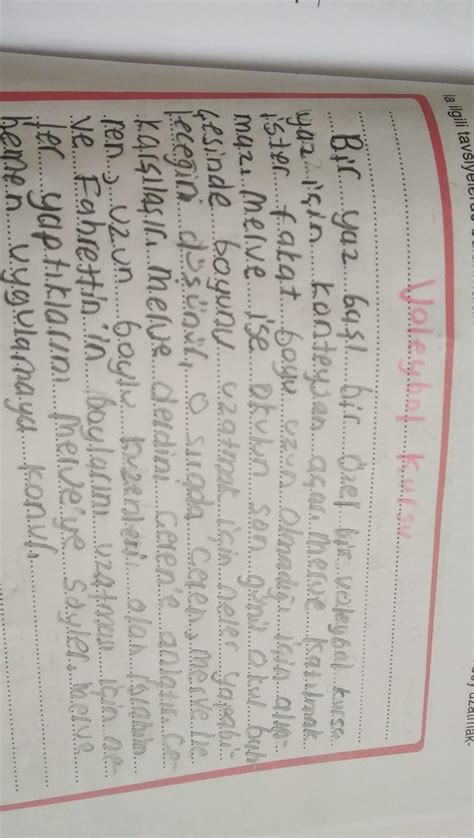 la ilgili tavsiyeler
Voleybol kursu
Bir yaz başı bir özel bir voleybol kursu
yaz için kontejyan açar. Merve katılmak
ister fakat boyu uzun olmadığı için alın-
maz. Merve ise okulun son günü okul bah-
çesinde boyunu uzatmak için neler yapabi-
leceğini düşünür. O sırada Ceren, Merve ile
karşılaşır. Merve derdini Ceren'e anlatır. Ce-
ren uzun boylu kuzenleri olan İbrahim
ve Fahrettin'in boylarını uzatması için ne-
ler yaptıklarını Merve'ye söyler. Merve
hemen uygulamaya konur.